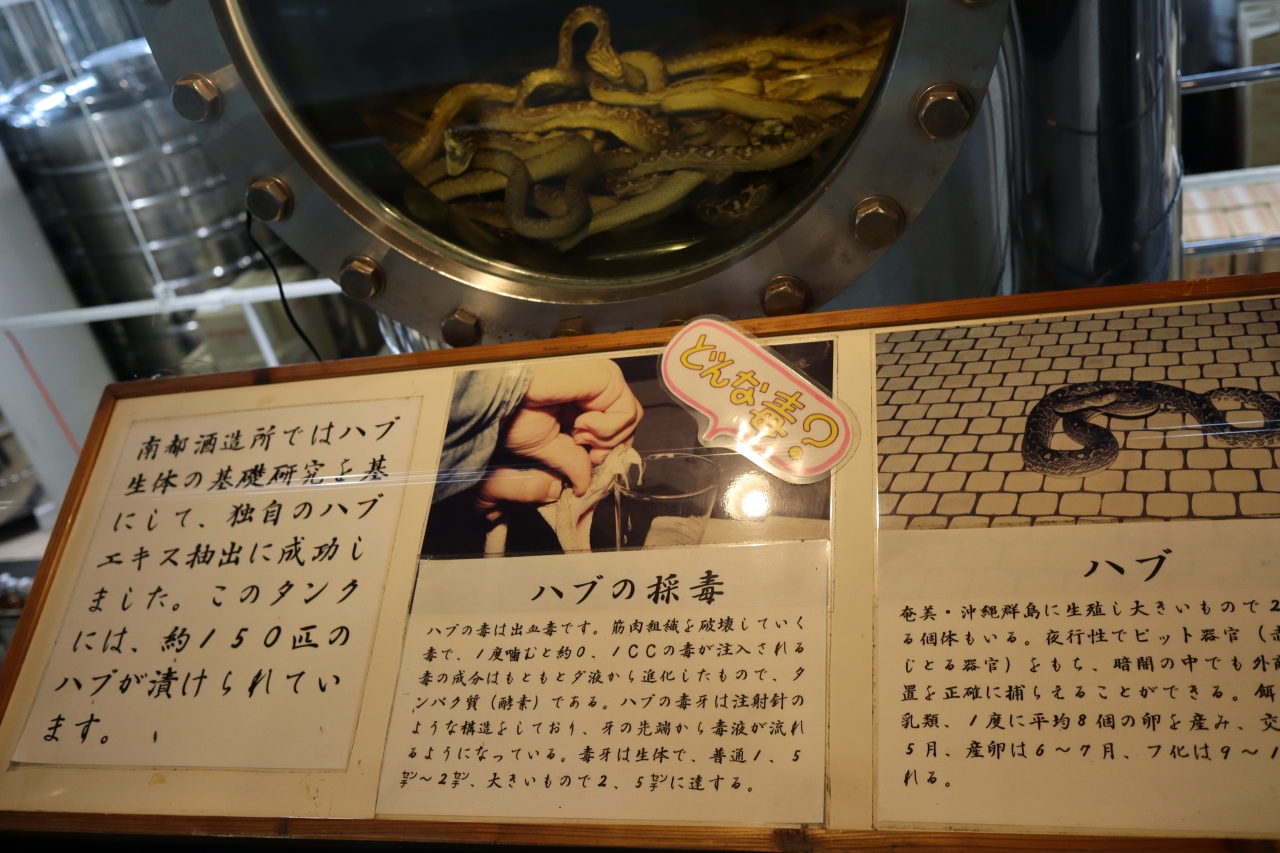 南都酒造所ではハブ
生体の基礎研究を基
にして、独自のハブ
エキス抽出に成功し
ました。このタンク
には、約150匹の
ハブが漬けられてい
ます。
どんな毒?
ハブの採毒
ハブの毒は出血毒です。筋肉組織を破壊していく
毒で、1度噛むと約0、1CCの毒が注入される
毒の成分はもともとダ液から進化したもので、タ
ンパク質（酵素）である。ハブの毒牙は注射針の
ような構造をしており、牙の先端から毒液が流れ
るようになっている。毒牙は生体で、普通1、5
センチ〜2センチ、大きいもので2、5センチに達する。
ハブ
奄美・沖縄群島に生殖し大きいもので2
る個体もいる。夜行性でピット器官（赤
じとる器官）をもち、暗闇の中でも外敵
置を正確に捕らえることができる。餌
乳類、1度に平均8個の卵を産み、交
5月、産卵は6〜7月、フ化は9〜1
れる。